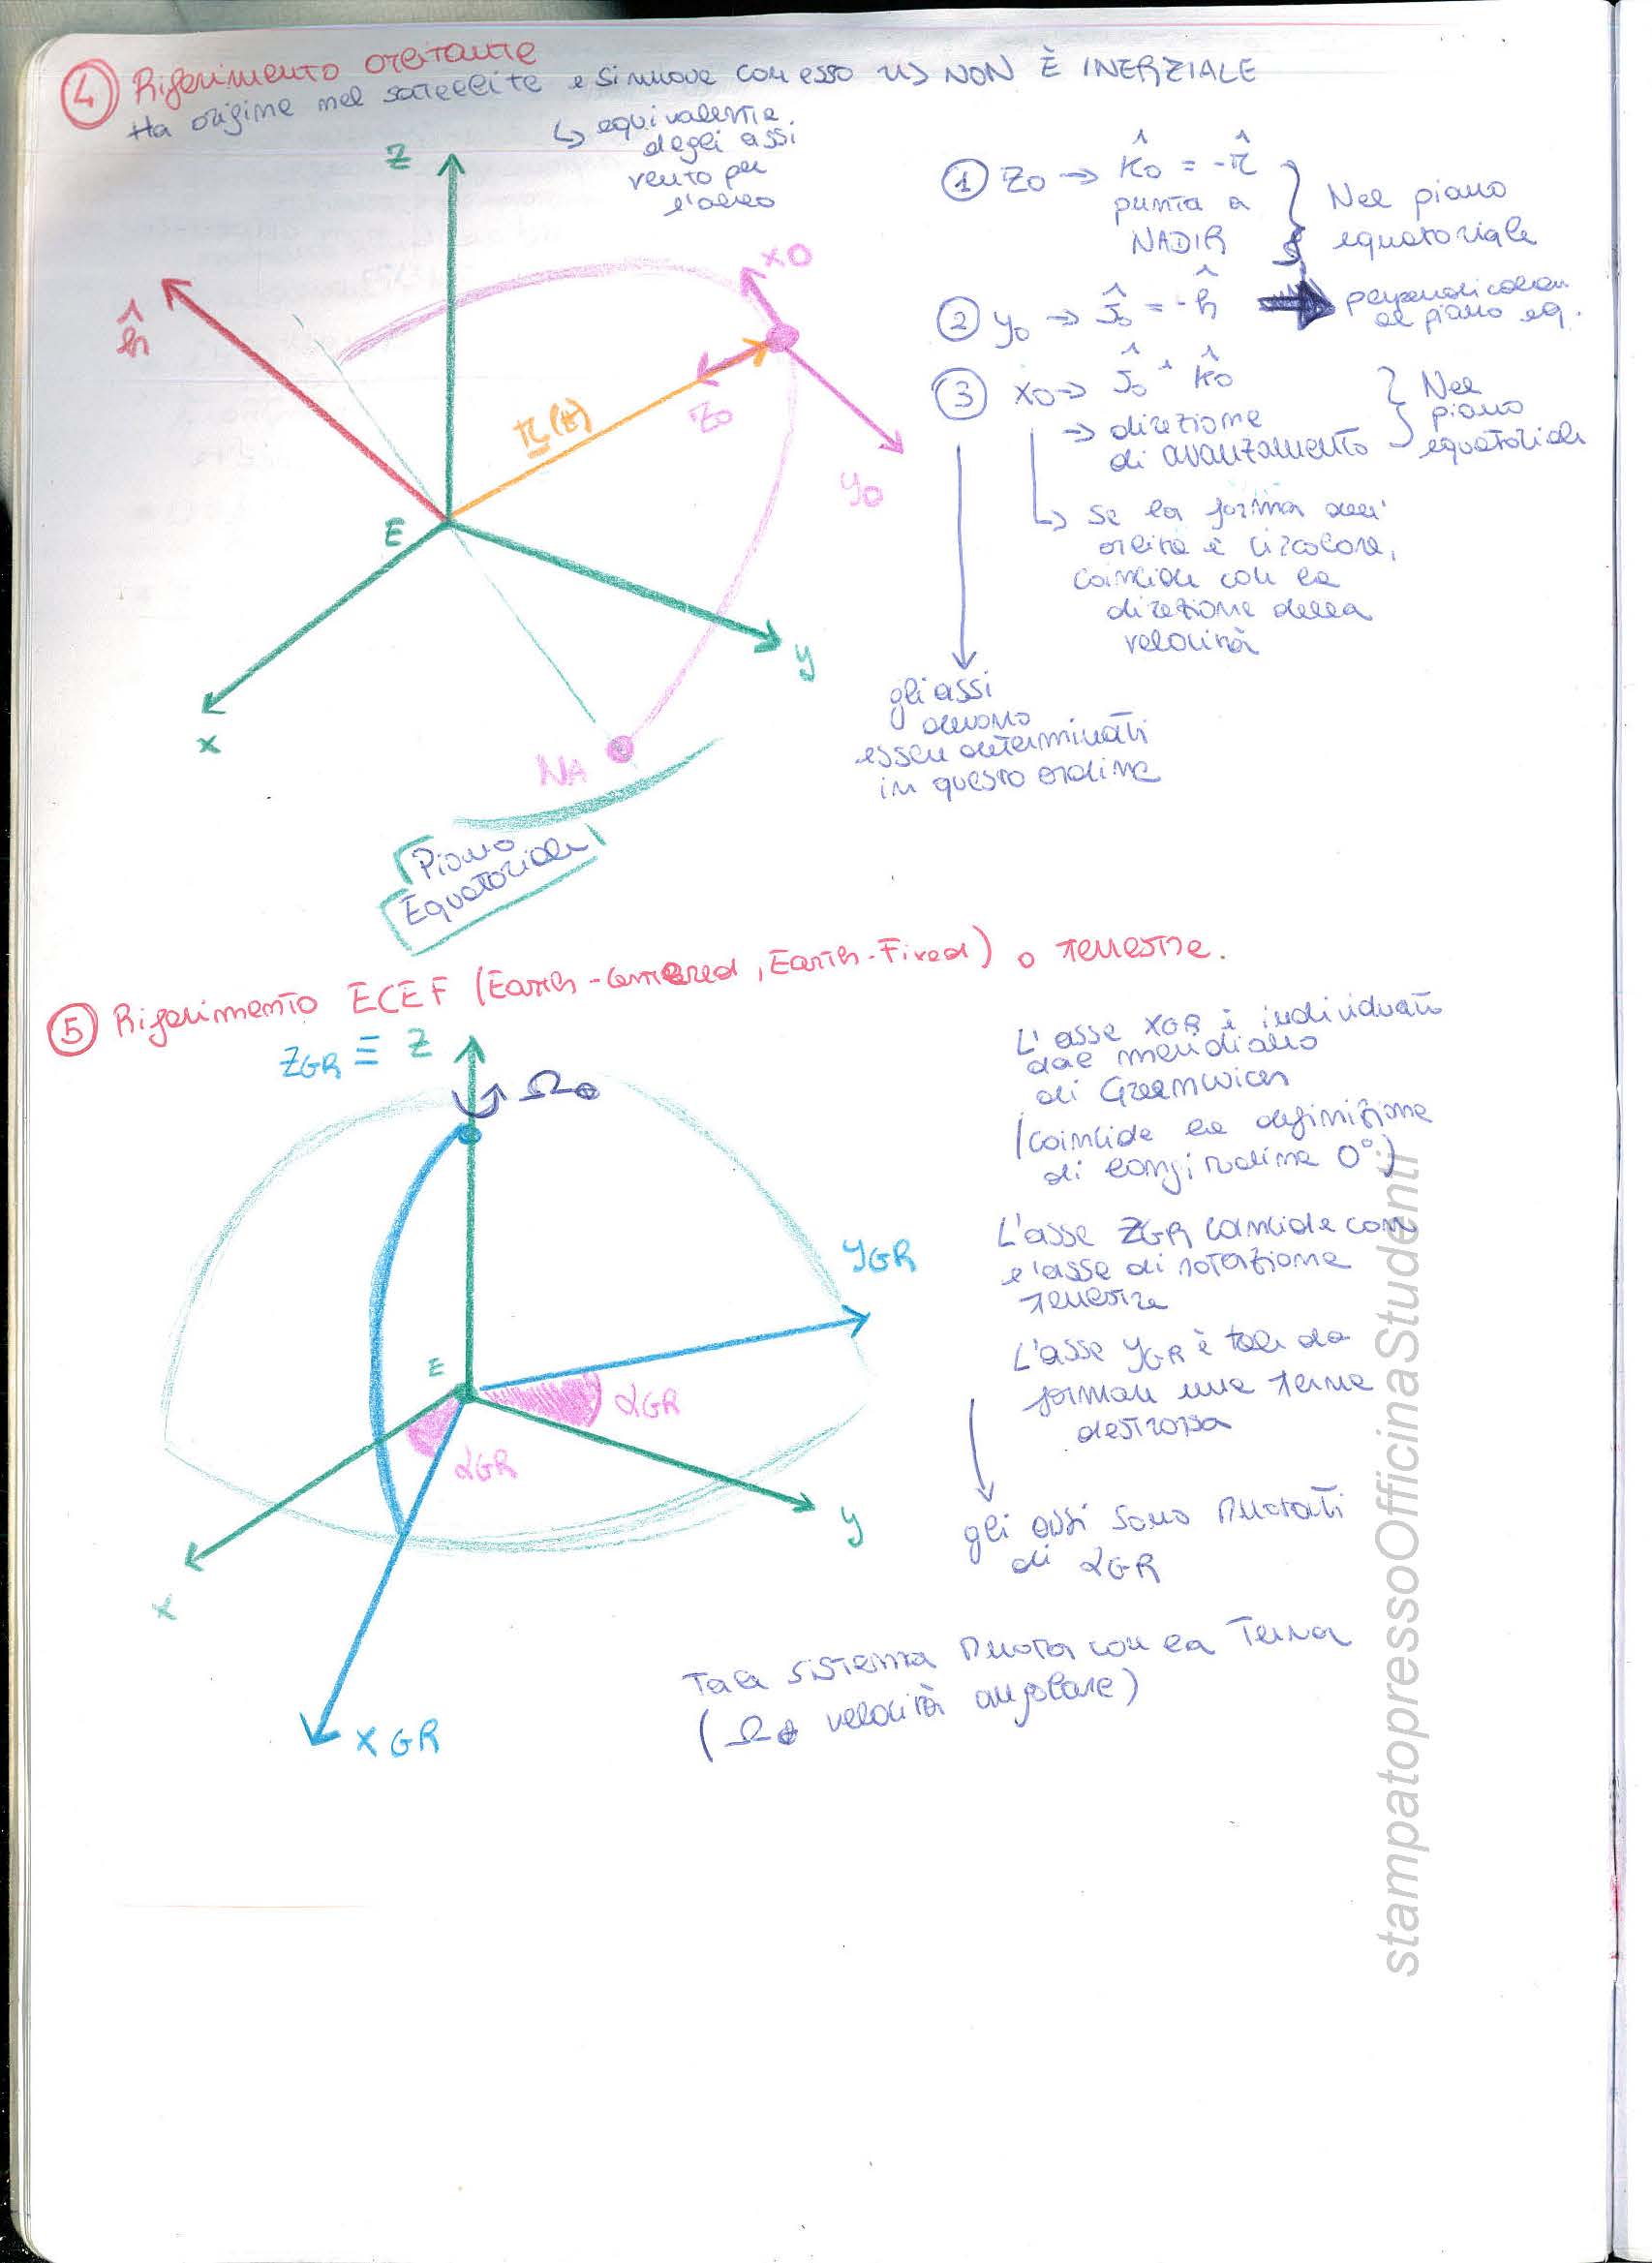 4 Riferimento orbitante
Ha origine nel satellite e si muove con esso ↳ NON È INERZIALE
↳ equivalente
degli assi
vento per
l'aereo
z
ĥ
x0
z0
y0
r(t)
E
x
y
NA
Piano
Equatoriale
1 z0 → k̂0 = -r̂
punta a
NADIR
Nel piano
equatoriale
2 y0 → ĵ0 = -ĥ
perpendicolare
al piano eq.
3 x0 → ĵ0 ^ k̂0
→ direzione
di avanzamento
Nel
piano
equatoriale
↳ se la forma dell'
orbita è circolare,
coincide con la
direzione della
velocità
gli assi
devono
essere determinati
in questo ordine
5 Riferimento ECEF (Earth-Centered, Earth-Fixed) o terrestre.
zGR ≡ z
Ω⊕
yGR
E
αGR
αGR
x
y
xGR
L'asse xGR è individuato
dal meridiano
di Greenwich
(coincide la definizione
di longitudine 0°)
L'asse zGR coincide con
l'asse di rotazione
terrestre
L'asse yGR è tale da
formare una terna
destrorsa
gli assi sono ruotati
di αGR
Tale sistema ruota con la Terra
(Ω⊕ velocità angolare)
stampatopressoOfficinaStudenti